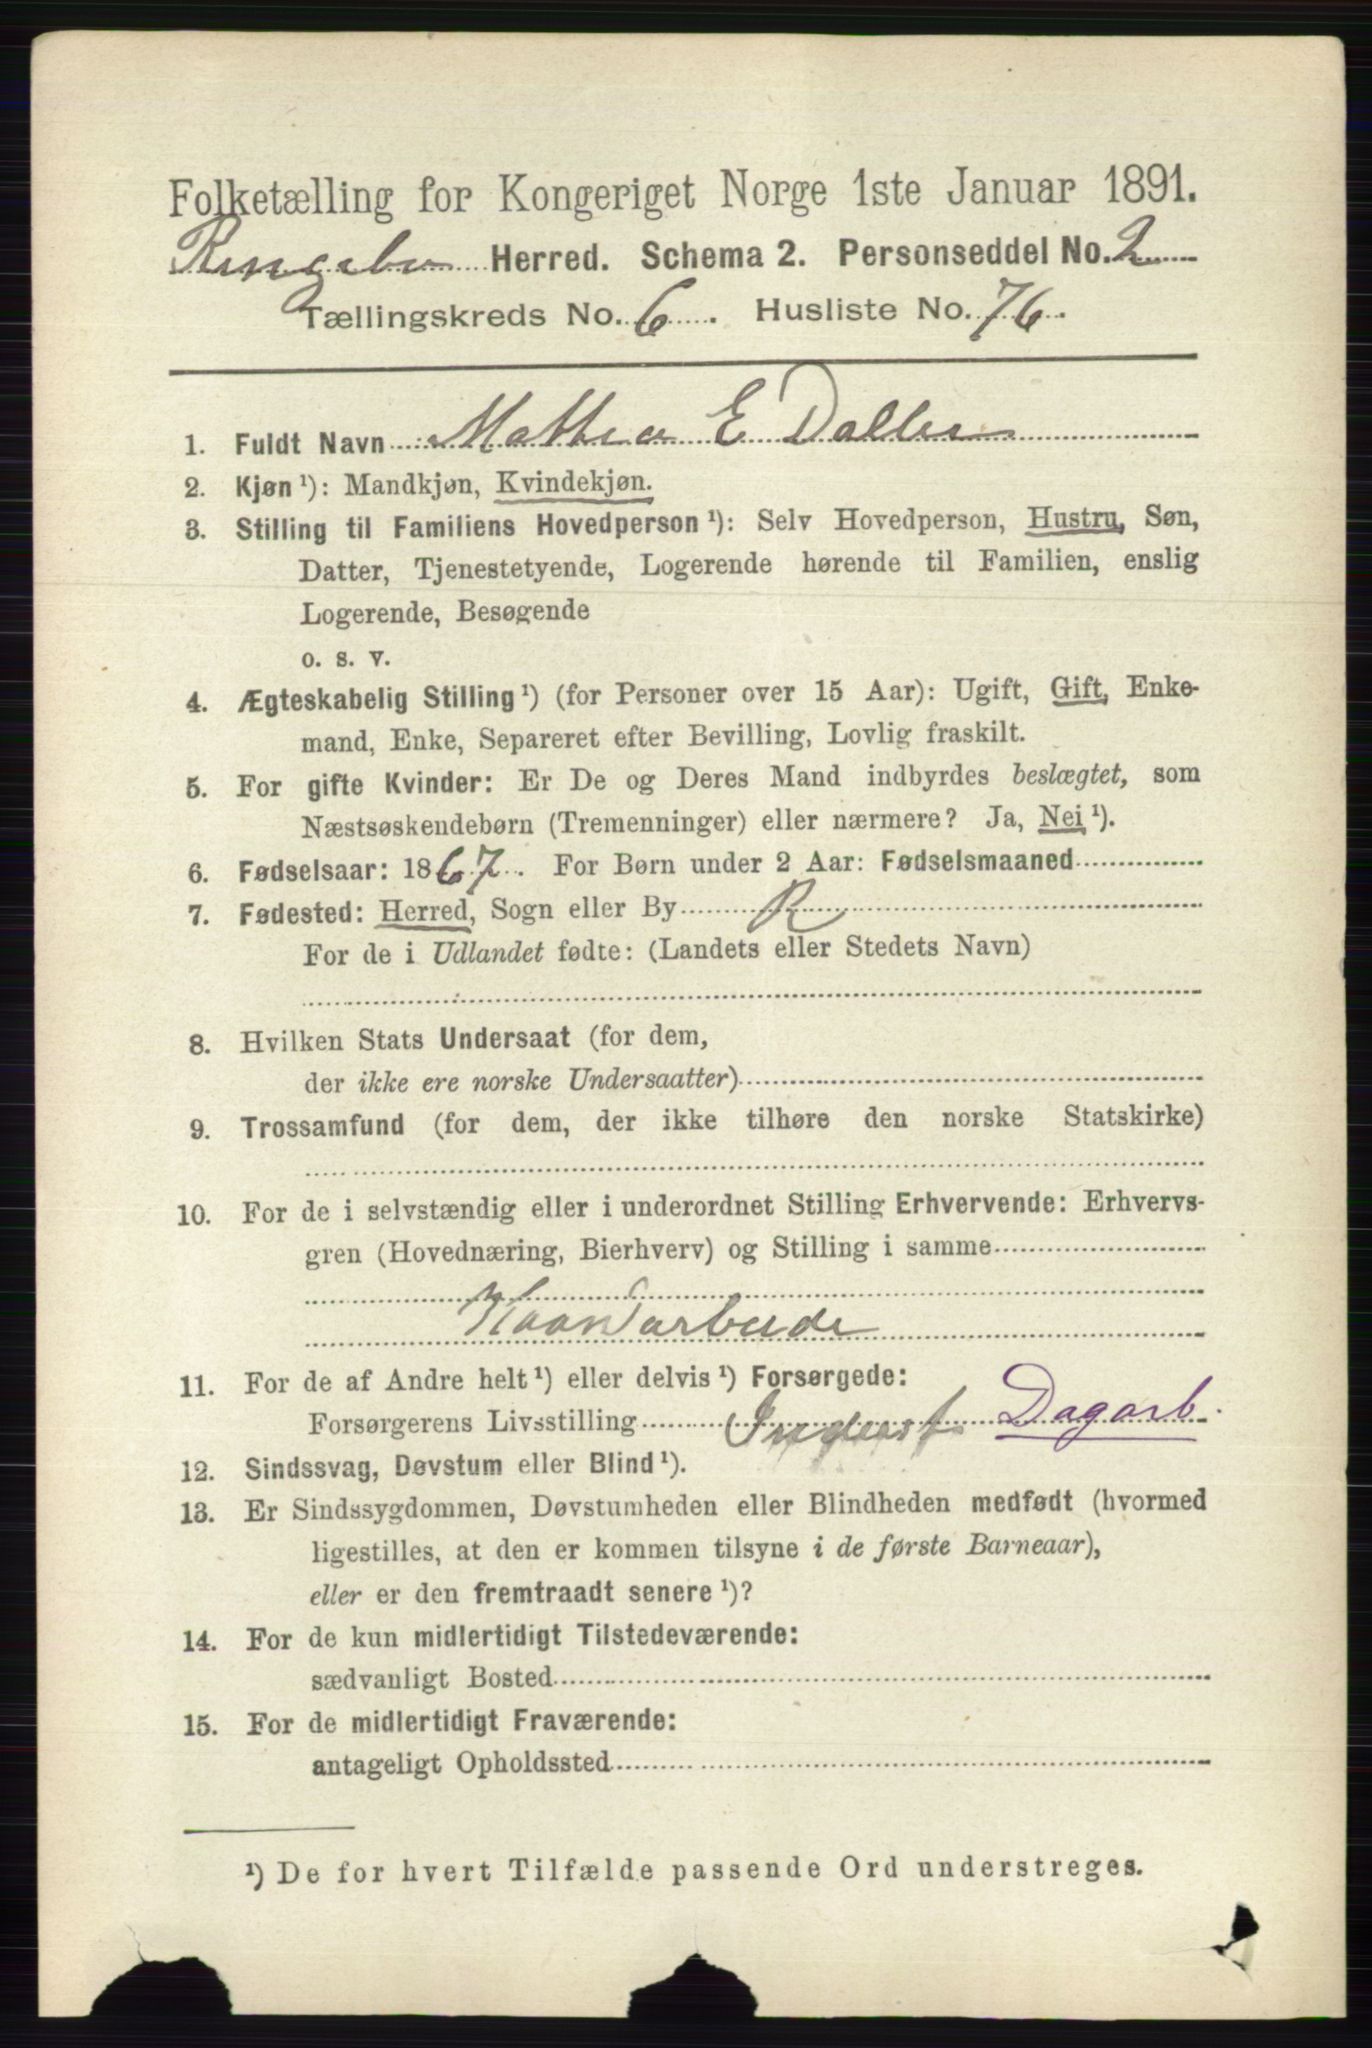 Folketælling for Kongeriget Norge 1ste Januar 1891.
Ringebu Herred. Schema 2. Personseddel No. 2
Tællingskreds No. 6. Husliste No. 76.
1. Fuldt Navn Mathea E Dallen
2. Kjøn ¹): Mandkjøn, Kvindekjøn.
3. Stilling til Familiens Hovedperson ¹): Selv Hovedperson, Hustru, Søn,
Datter, Tjenestetyende, Logerende hørende til Familien, enslig
Logerende, Besøgende
o. s. v.
4. Ægteskabelig Stilling ¹) (for Personer over 15 Aar): Ugift, Gift, Enke-
mand, Enke, Separeret efter Bevilling, Lovlig fraskilt.
5. For gifte Kvinder: Er De og Deres Mand indbyrdes beslægtet, som
Næstsøskendebørn (Tremenninger) eller nærmere? Ja, Nei ¹).
6. Fødselsaar: 1867. For Børn under 2 Aar: Fødselsmaaned
7. Fødested: Herred, Sogn eller By R
For de i Udlandet fødte: (Landets eller Stedets Navn)
8. Hvilken Stats Undersaat (for dem,
der ikke ere norske Undersaatter)
9. Trossamfund (for dem, der ikke tilhøre den norske Statskirke)
10. For de i selvstændig eller i underordnet Stilling Erhvervende: Erhvervs-
gren (Hovednæring, Bierhverv) og Stilling i samme
Haandarbeide
11. For de af Andre helt ¹) eller delvis ¹) Forsørgede:
Forsørgerens Livsstilling Inderst. Dagarb.
12. Sindssvag, Døvstum eller Blind ¹).
13. Er Sindssygdommen, Døvstumheden eller Blindheden medfødt (hvormed
ligestilles, at den er kommen tilsyne i de første Barneaar),
eller er den fremtraadt senere ¹)?
14. For de kun midlertidigt Tilstedeværende:
sædvanligt Bosted
15. For de midlertidigt Fraværende:
antageligt Opholdssted
¹) De for hvert Tilfælde passende Ord understreges.